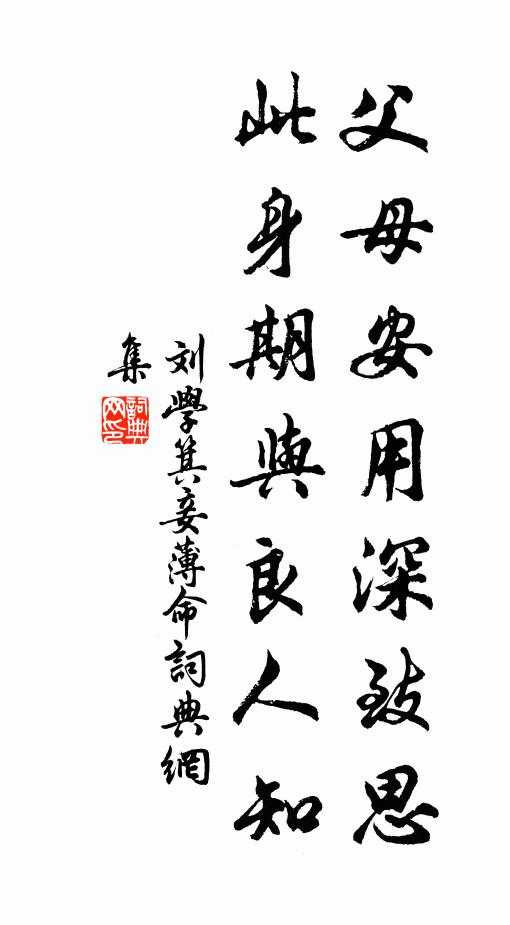 父母安用深致思
此身期與良人知
刘學箕妾薄命詞典網
集
詞典網印